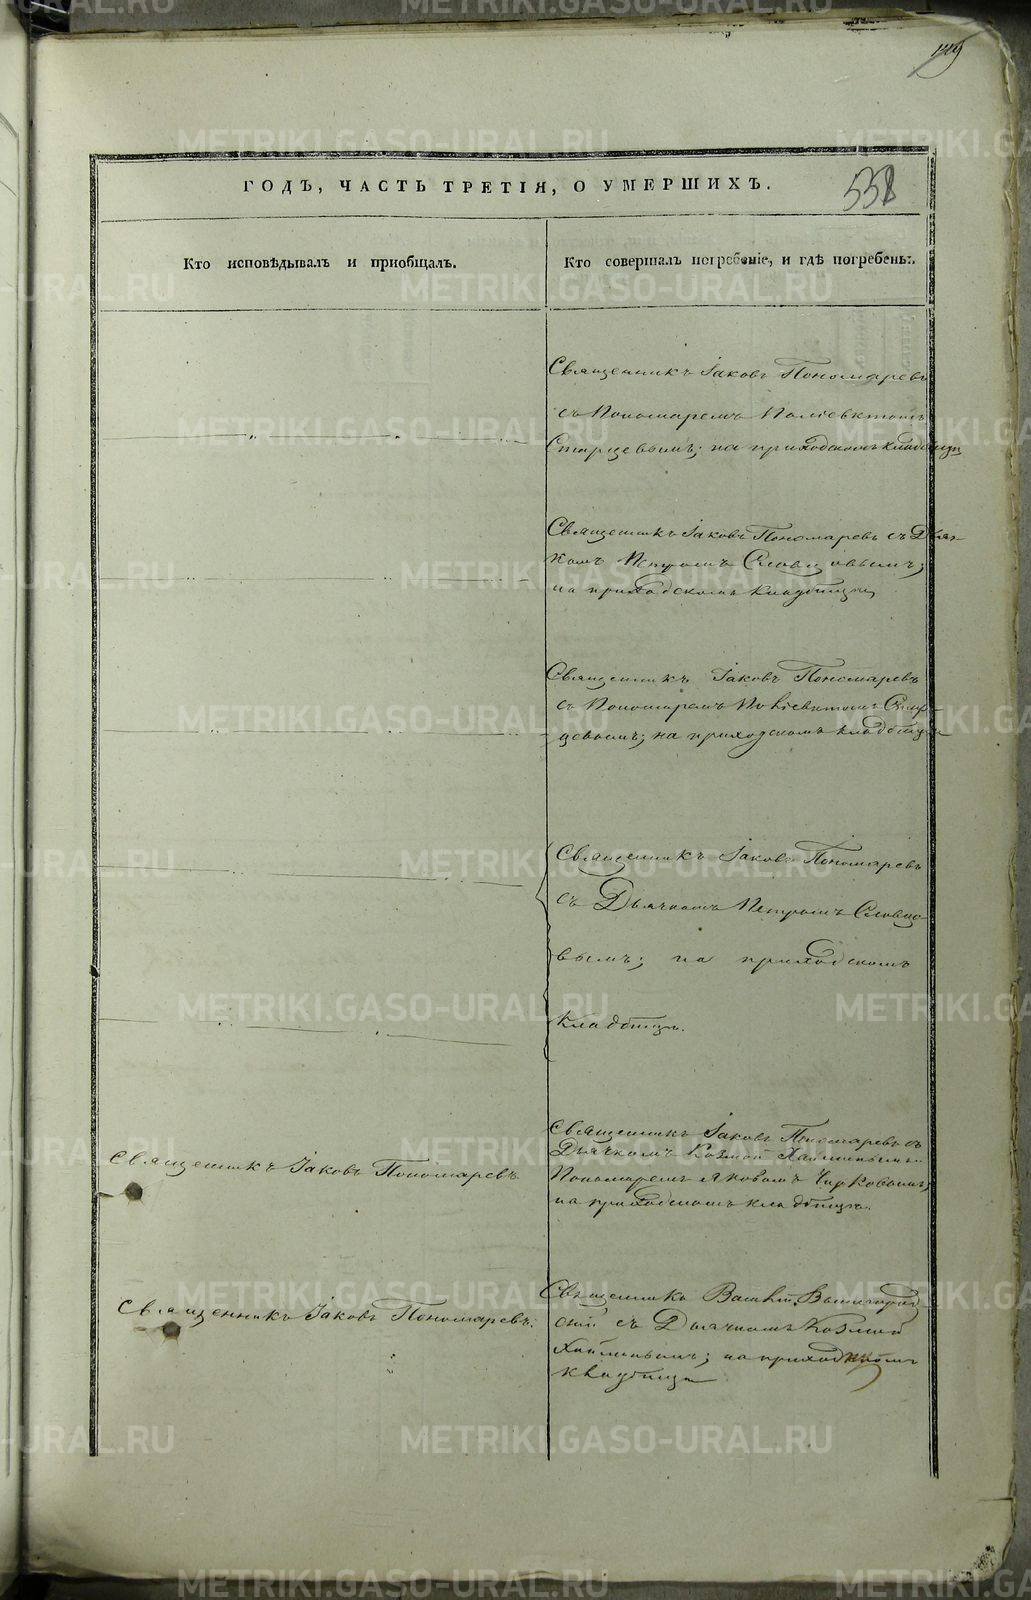 ГОДЪ, ЧАСТЬ ТРЕТІЯ, О УМЕРШИХЪ.
558
Кто исповѣдывалъ и пріобщалъ.
Кто совершалъ погребеніе, и гдѣ погребены.
Священникъ Іаковъ Пономаревъ
съ Пономаремъ Поліевктомъ
Старцевымъ; на приходскомъ кладбищѣ
Священникъ Іаковъ Пономаревъ съ Дьяч-
комъ Петромъ Словцовымъ;
на приходскомъ кладбищѣ
Священникъ Іаковъ Пономаревъ
съ Пономаремъ Поліевктомъ Стар-
цевымъ; на приходскомъ кладбищѣ
Священникъ Іаковъ Пономаревъ
съ Дьячкомъ Петромъ Словцо-
вымъ; на приходскомъ
кладбищѣ.
Священникъ Іаковъ Пономаревъ
Священникъ Іаковъ Пономаревъ съ
Дьячкомъ Козмой
Пономаремъ Яковомъ Чирковымъ;
на приходскомъ кладбищѣ.
Священникъ Іаковъ Пономаревъ.
Священникъ
съ Дьячкомъ Козмой
на приходскомъ
кладбищѣ
METRIKI.GASO-URAL.RU